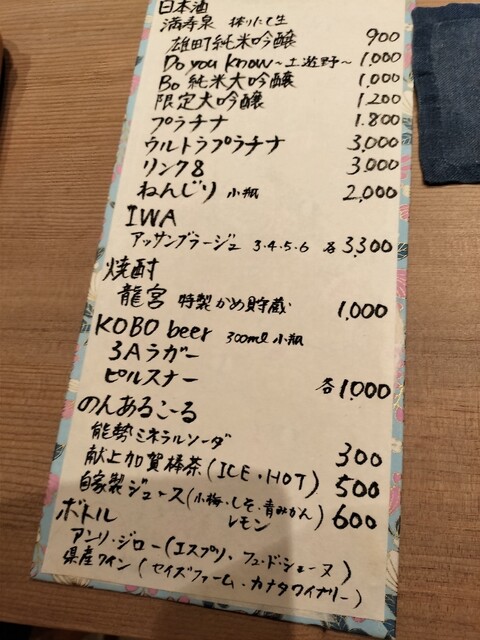 日本酒
満寿泉 搾りたて生
雄町純米吟醸 900
Do you know〜土遊野〜 1,000
Bo 純米大吟醸 1,000
限定大吟醸 1,200
プラチナ 1.800
ウルトラプラチナ 3,000
リンク8 3,000
ねんじり 小瓶 2,000
IWA
アッサンブラージュ 3.4.5.6 各3,300
焼酎
龍宮 特製かめ貯蔵 1,000
KOBO beer 300ml 小瓶
3Aラガー
ピルスナー 各1,000
のんあるこーる
能勢ミネラルソーダ 300
献上加賀棒茶(ICE・HOT) 500
自家製ジュース(小梅・しそ・青みかん レモン) 600
ボトル
アンリ・ジロー(エスプリ・フュ・ド・シェーヌ)
県産ワイン(セイズファーム・カナタワイナリー)